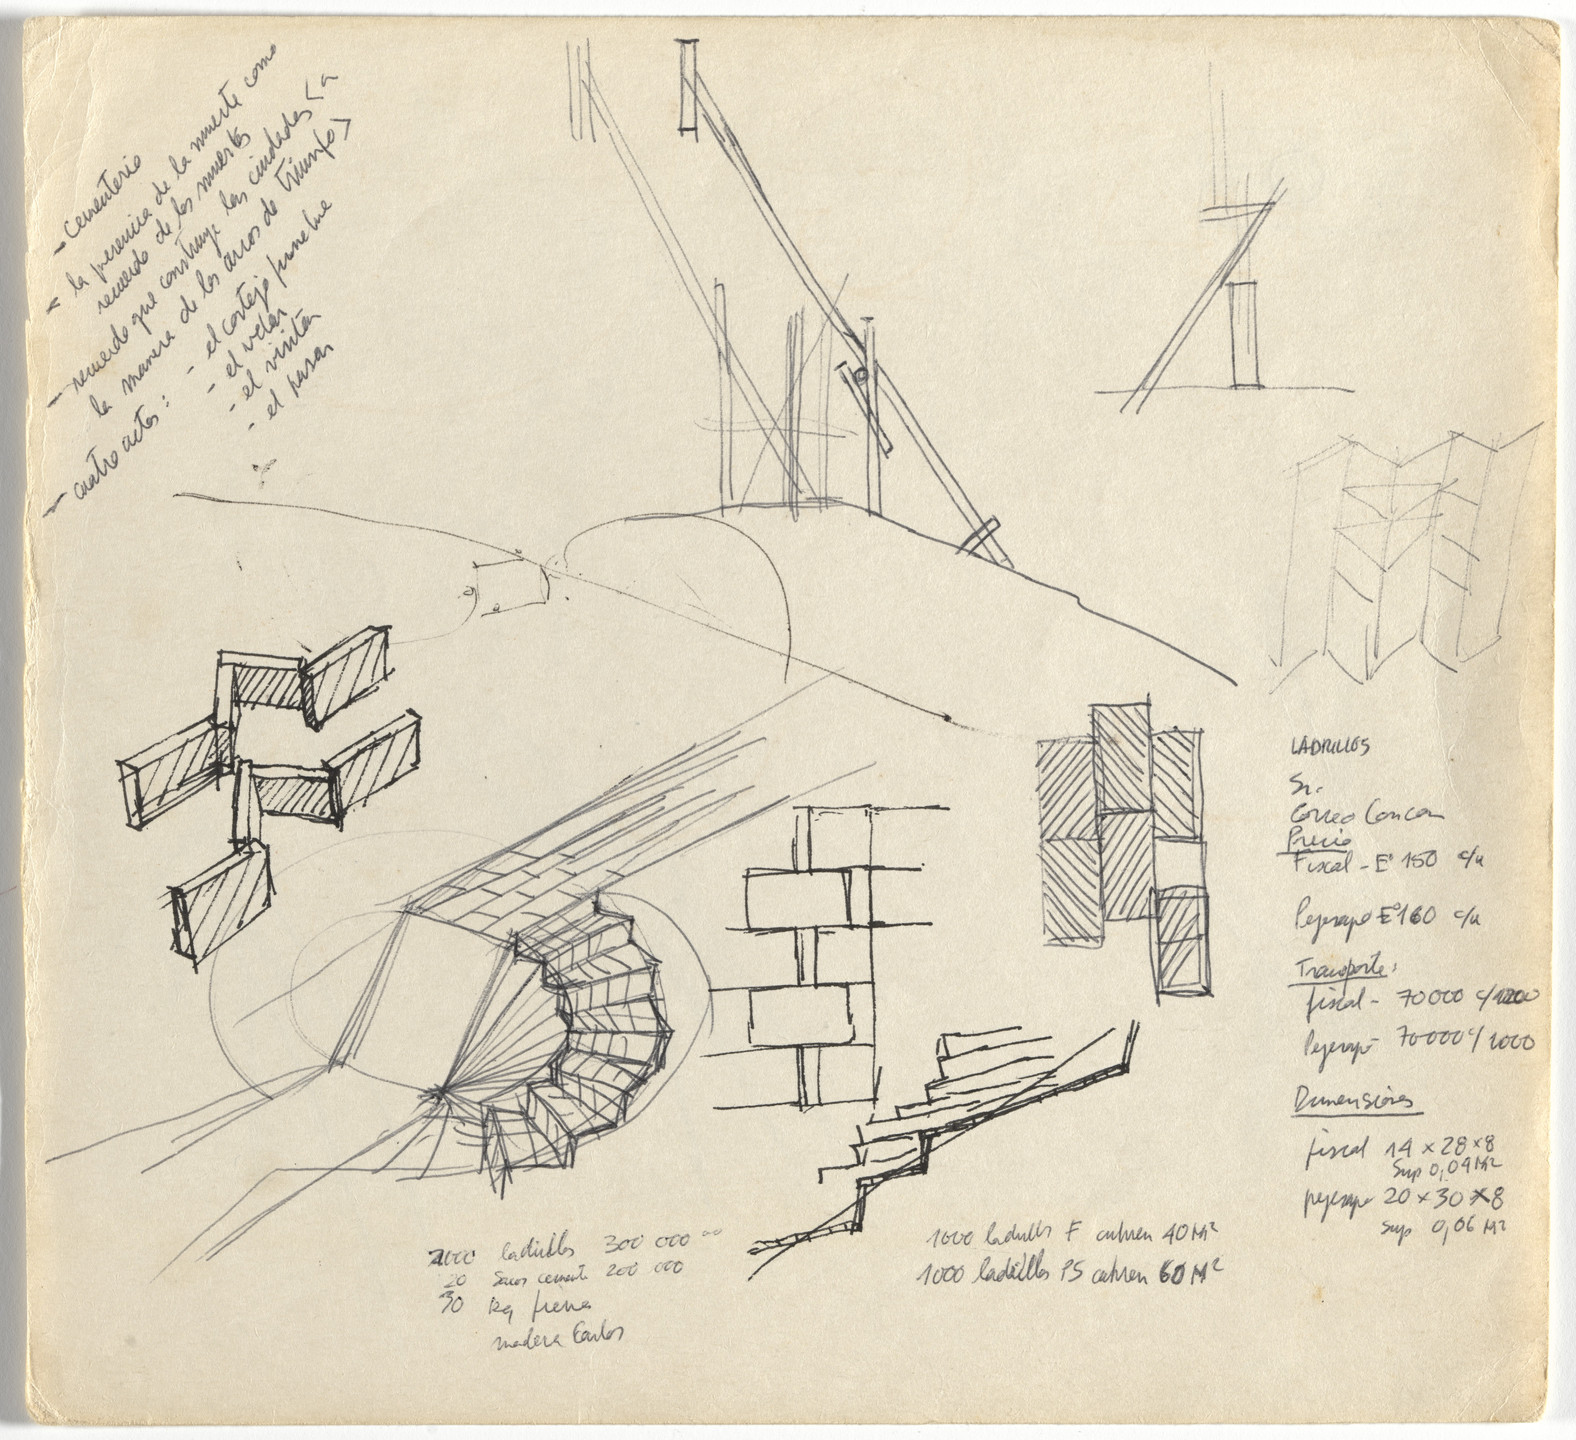 - cementerio
- la presencia de la muerte como
recuerdo de los muertos
- recuerdo que construye las ciudades <a
la manera de los arcos de triunfo>
- cuatro actos:
- el cortejo funebre
- el velar
- el visitar
- el pasar
LADRILLOS
Sr.
Correo Concon
Precio
Fiscal - Eº 150 c/u
Pejesapo Eº 160 c/u
Transporte:
fiscal - 70000 c/1200
Pejesapo - 70000 c/ 1000
Dimensiones
fiscal 14 x 28 x 8
Sup 0,04 M²
pejesapo 20 x 30 x 8
sup 0,06 M²
2000 ladrillos 300 000 ºº
20 Sacos cemento 200 000
30 Kg fierro
madera Carlos
1000 ladrillos F cubren 40 M²
1000 ladrillos PS cubren 60 M²